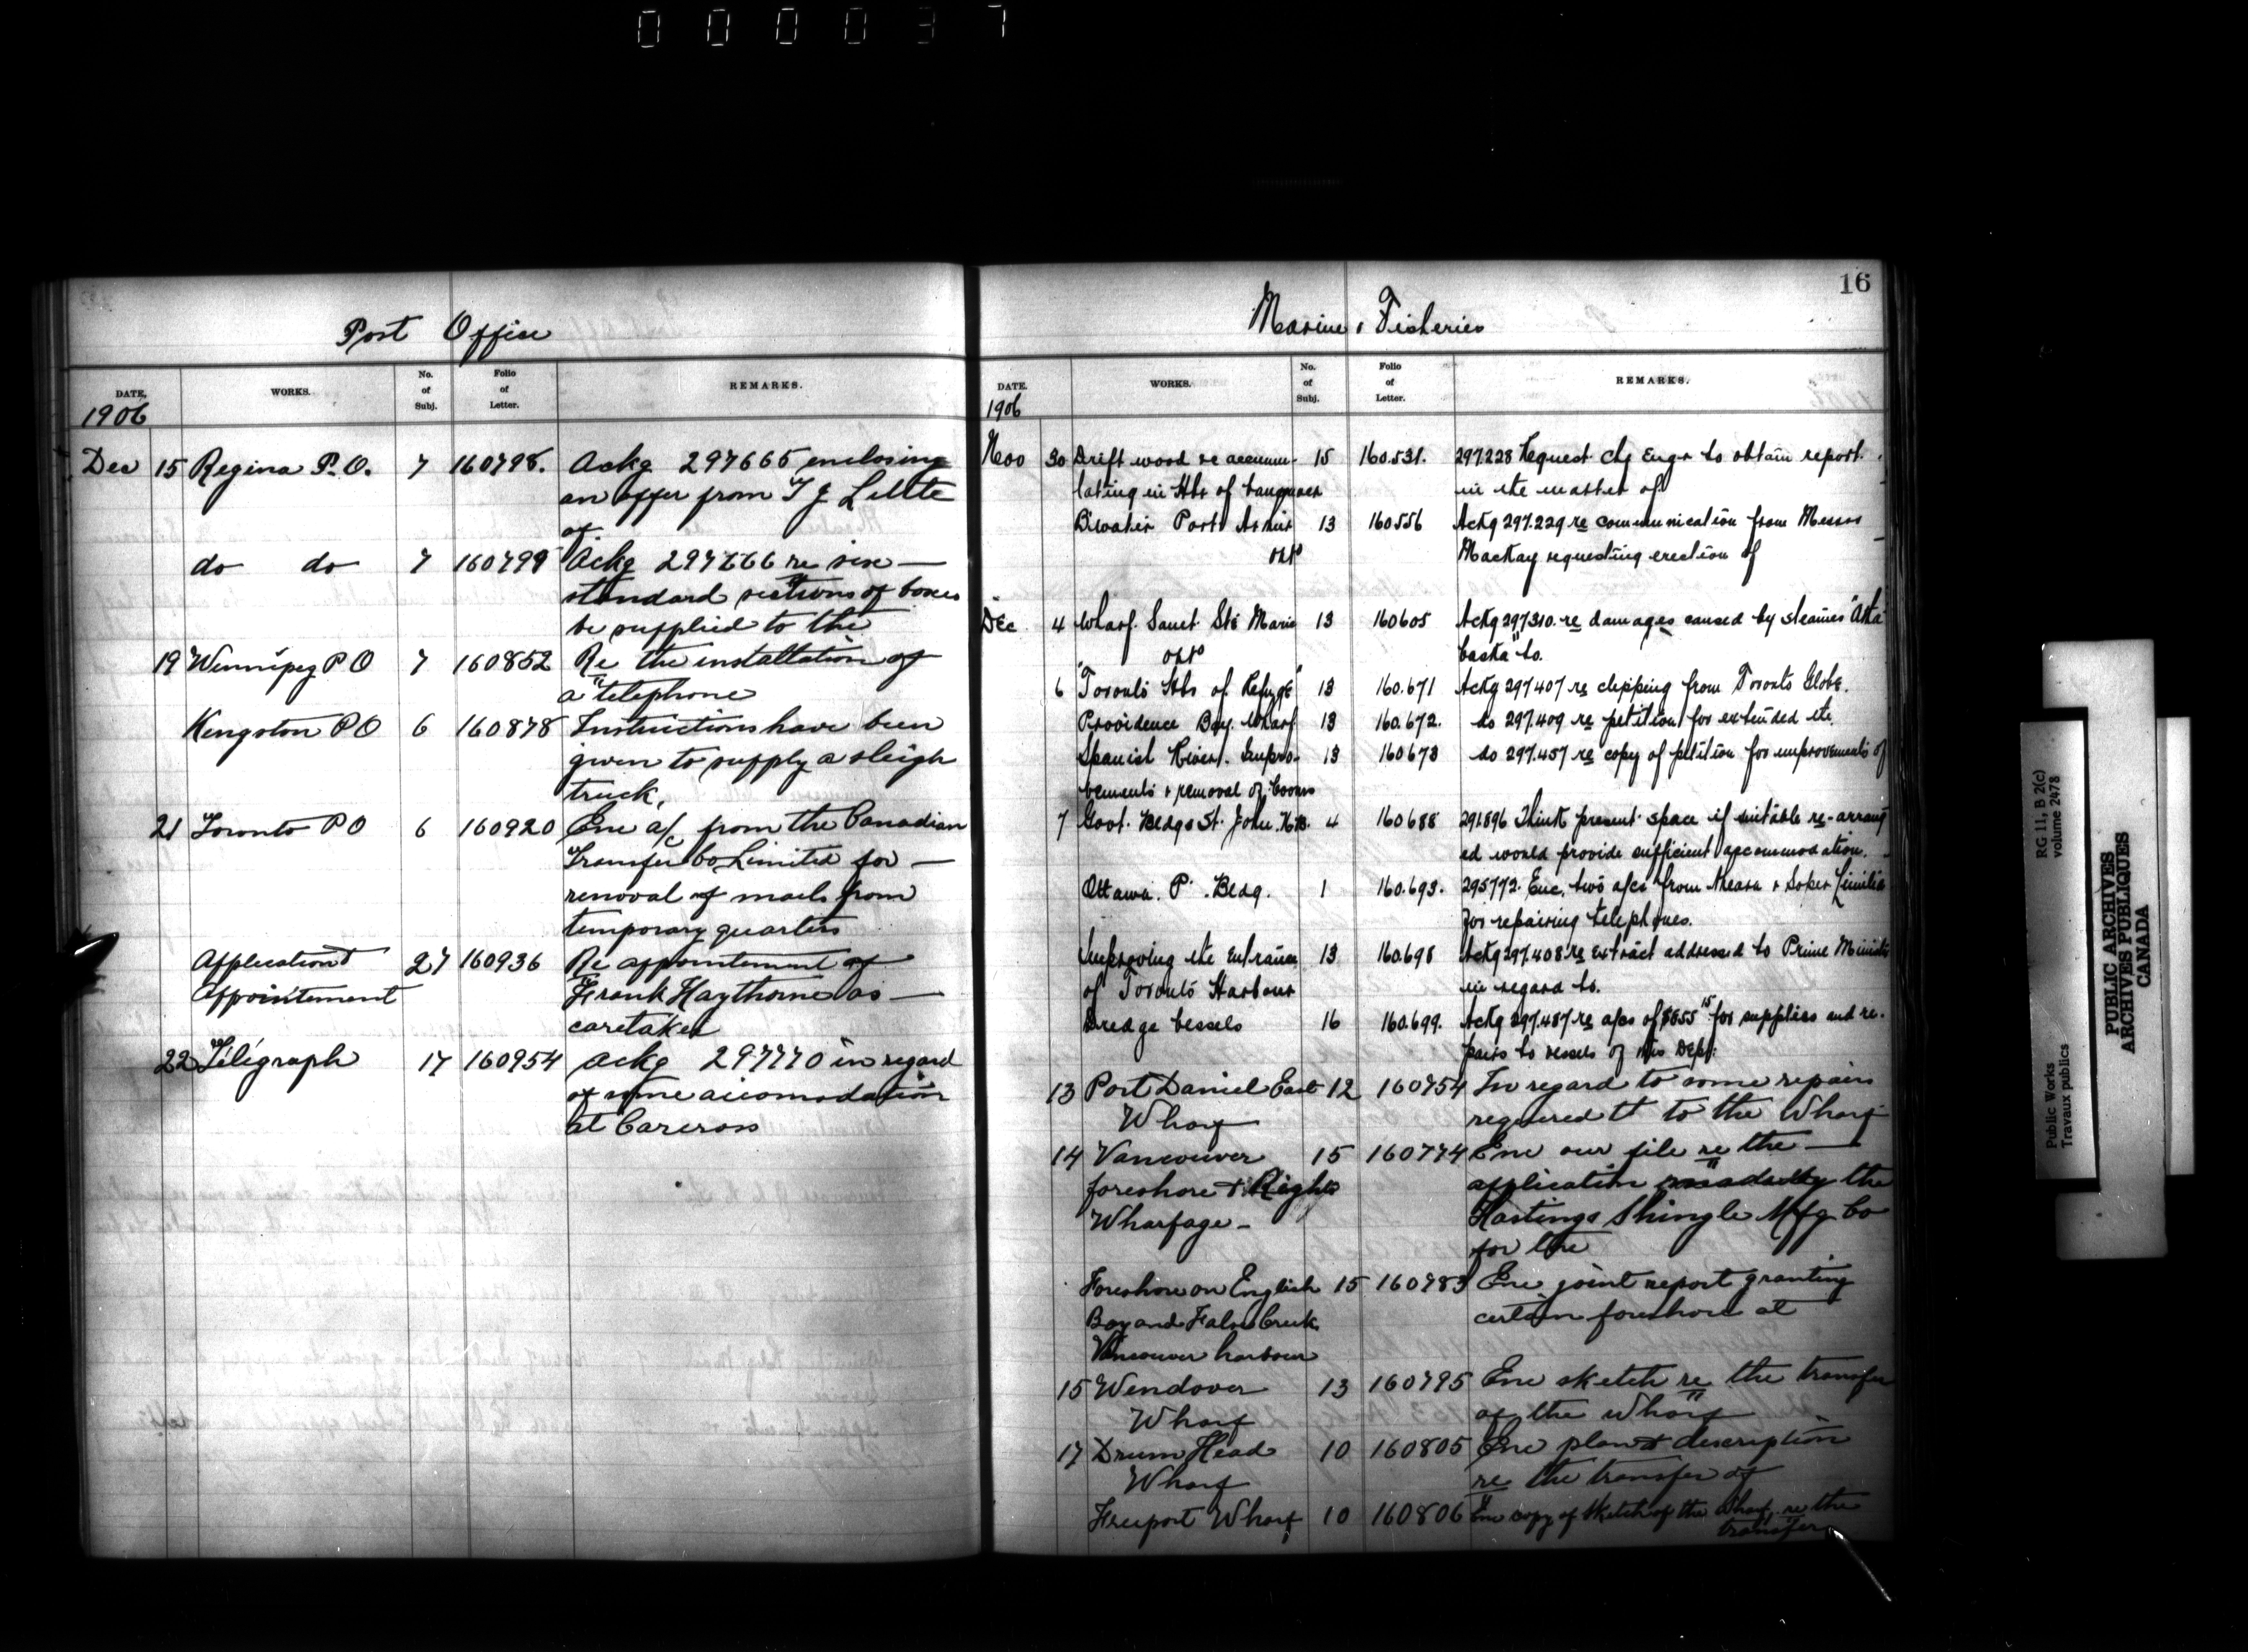 0 0 0 0 3 7
Post Office
DATE. WORKS. No. of Subj. Folio of Letter. REMARKS.
1906
Dec 15 Regina P.O. 7 160798. Ackg 297665 enclosing
an offer from T J
of
do do 7 160799 Ackg 297666 re six
standard sections of boxes
be supplied to the
19 Winnipeg P O 7 160852 Re the installation of
a telephone
Kingston P O 6 160878 Instructions have been
given to supply a sleigh
truck.
21 Toronto P O 6 160920 Enc a/c from the Canadian
Transfer Co Limited for
removal of mails from
temporary quarters
Application & 27 160936 Re appointement of
Appointement Frank Haythorne as
caretaker
22 Télégraph 17 160954 Ackg 297770 in regard
of some accomodation
at Carcross
16
Marine & Fisheries
DATE. WORKS. No. of Subj. Folio of Letter. REMARKS.
1906
Nov 30 Drift wood re accumu- 15 160.531. 297.228 Request Chf Engr to obtain report
lating in Hbr of Vancouver in the matter of
Port Arthur 13 160.556 Ackg 297.229 re communication from Messrs
Ont Mackay requesting erection of
Dec 4 Wharf Sault Ste Marie 13 160605 Ackg 297310 re damages caused by steamer "Atha
Ont basca" to.
6 "Toronto Hbr of Refuge" 13 160.671 Ackg 297.407 re clipping from Toronto Globe.
Providence Bay Wharf 13 160.672. do 297.409 re petition for extended etc.
Spanish River. Impro- 13 160673 do 297.457 re copy of petition for improvements of
vements & removal of booms
7 Govt. Bldgs St. John. N.B. 4 160688 291.896 Think present space if suitable re-arrang
ed would provide sufficient accommodation.
Ottawa. P. Bldg. 1 160.693. 295772. Enc. two a/cs from Ahearn & Soper Limited
for repairing telephones.
Improving the Entrance 13 160.698 Ackg 297.408 re extract addressed to Prime Minister
of Toronto Harbour in regard to.
Dredge Vessels 16 160.699. Ackg 297.487 re a/cs of for supplies and re-
pairs to vessels of this Dept.
13 Port Daniel East 12 160754 In regard to some repairs
Wharf required to the Wharf
14 Vancouver 15 160774 Enc our file re the
foreshore & Rights application made by the
Wharfage - Hastings Shingle Mfg Co
for the
Foreshore on English 15 160783 Enc joint report granting
Bay and False Creek certain foreshore at
Vancouver harbour
15 Wendover 13 160795 Enc sketch re the transfer
Wharf of the Wharf
17 Drum Head 10 160805 Enc plan & description
Wharf re the transfer of
Freeport Wharf 10 160806 Enc copy of sketch of the Wharf, re the
transfer
Public Works
Travaux publics
RG 11, B 2(c)
volume 2478
PUBLIC ARCHIVES
ARCHIVES PUBLIQUES
CANADA